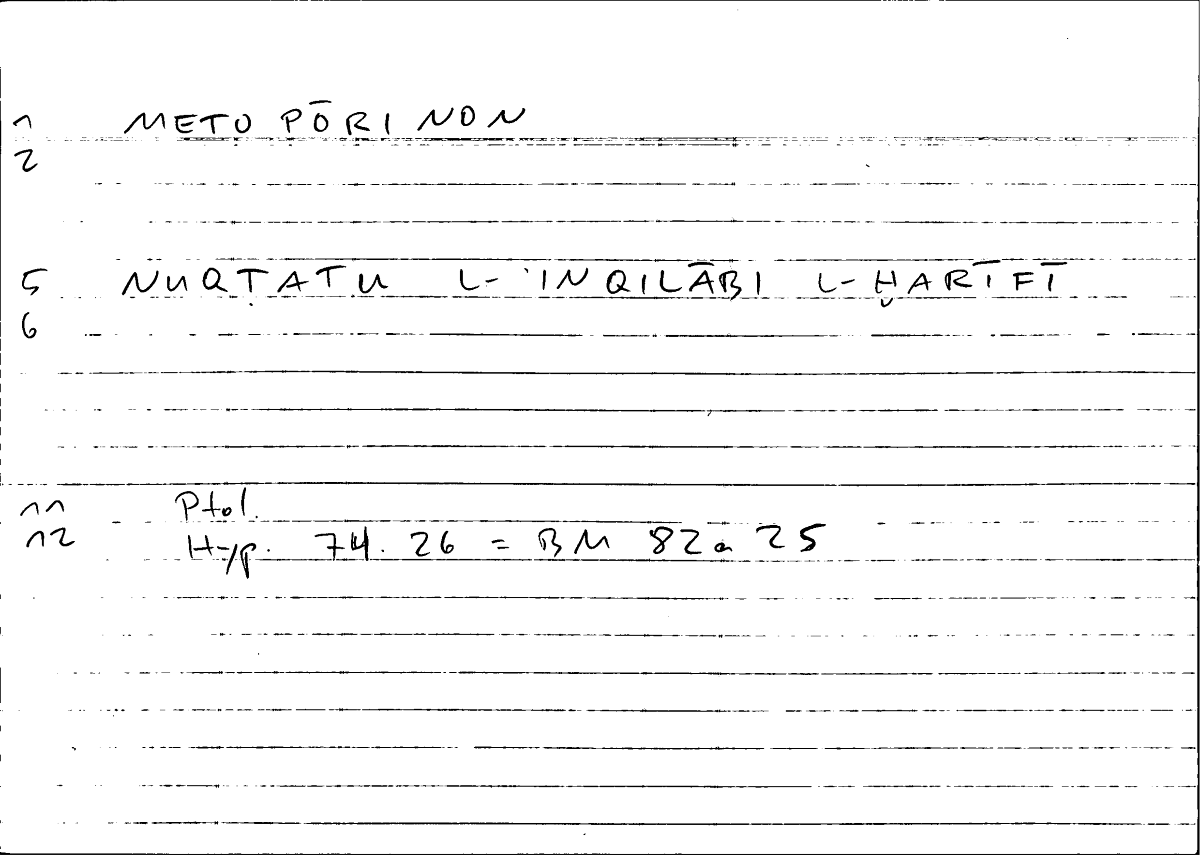 1 METOPŌRINON
2
5 NUQṬATU L-ʾINQILĀBI L-ḪARĪFĪ
6
11 Ptol.
12 Hyp. 74.26 = BM 82a 25